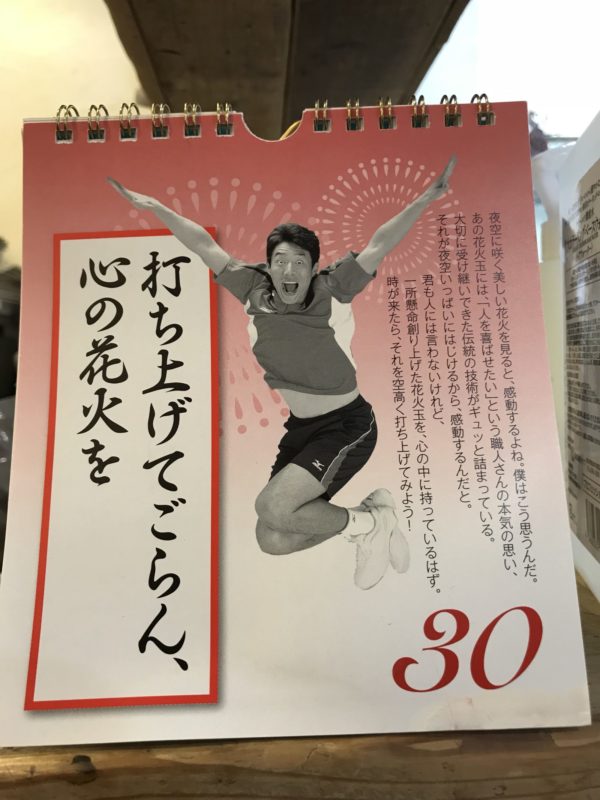 打ち上げてごらん、
心の花火を
夜空に咲く美しい花火を見ると、感動するよね。僕はこう思うんだ。
あの花火玉には、「人を喜ばせたい」という職人さんの本気の思い、
大切に受け継いできた伝統の技術がギュッと詰まっている。
それが夜空いっぱいにはじけるから、感動するんだと。
君も人には言わないけれど、
一所懸命創り上げた花火玉を、心の中に持っているはず。
時が来たら、それを空高く打ち上げてみよう！
30